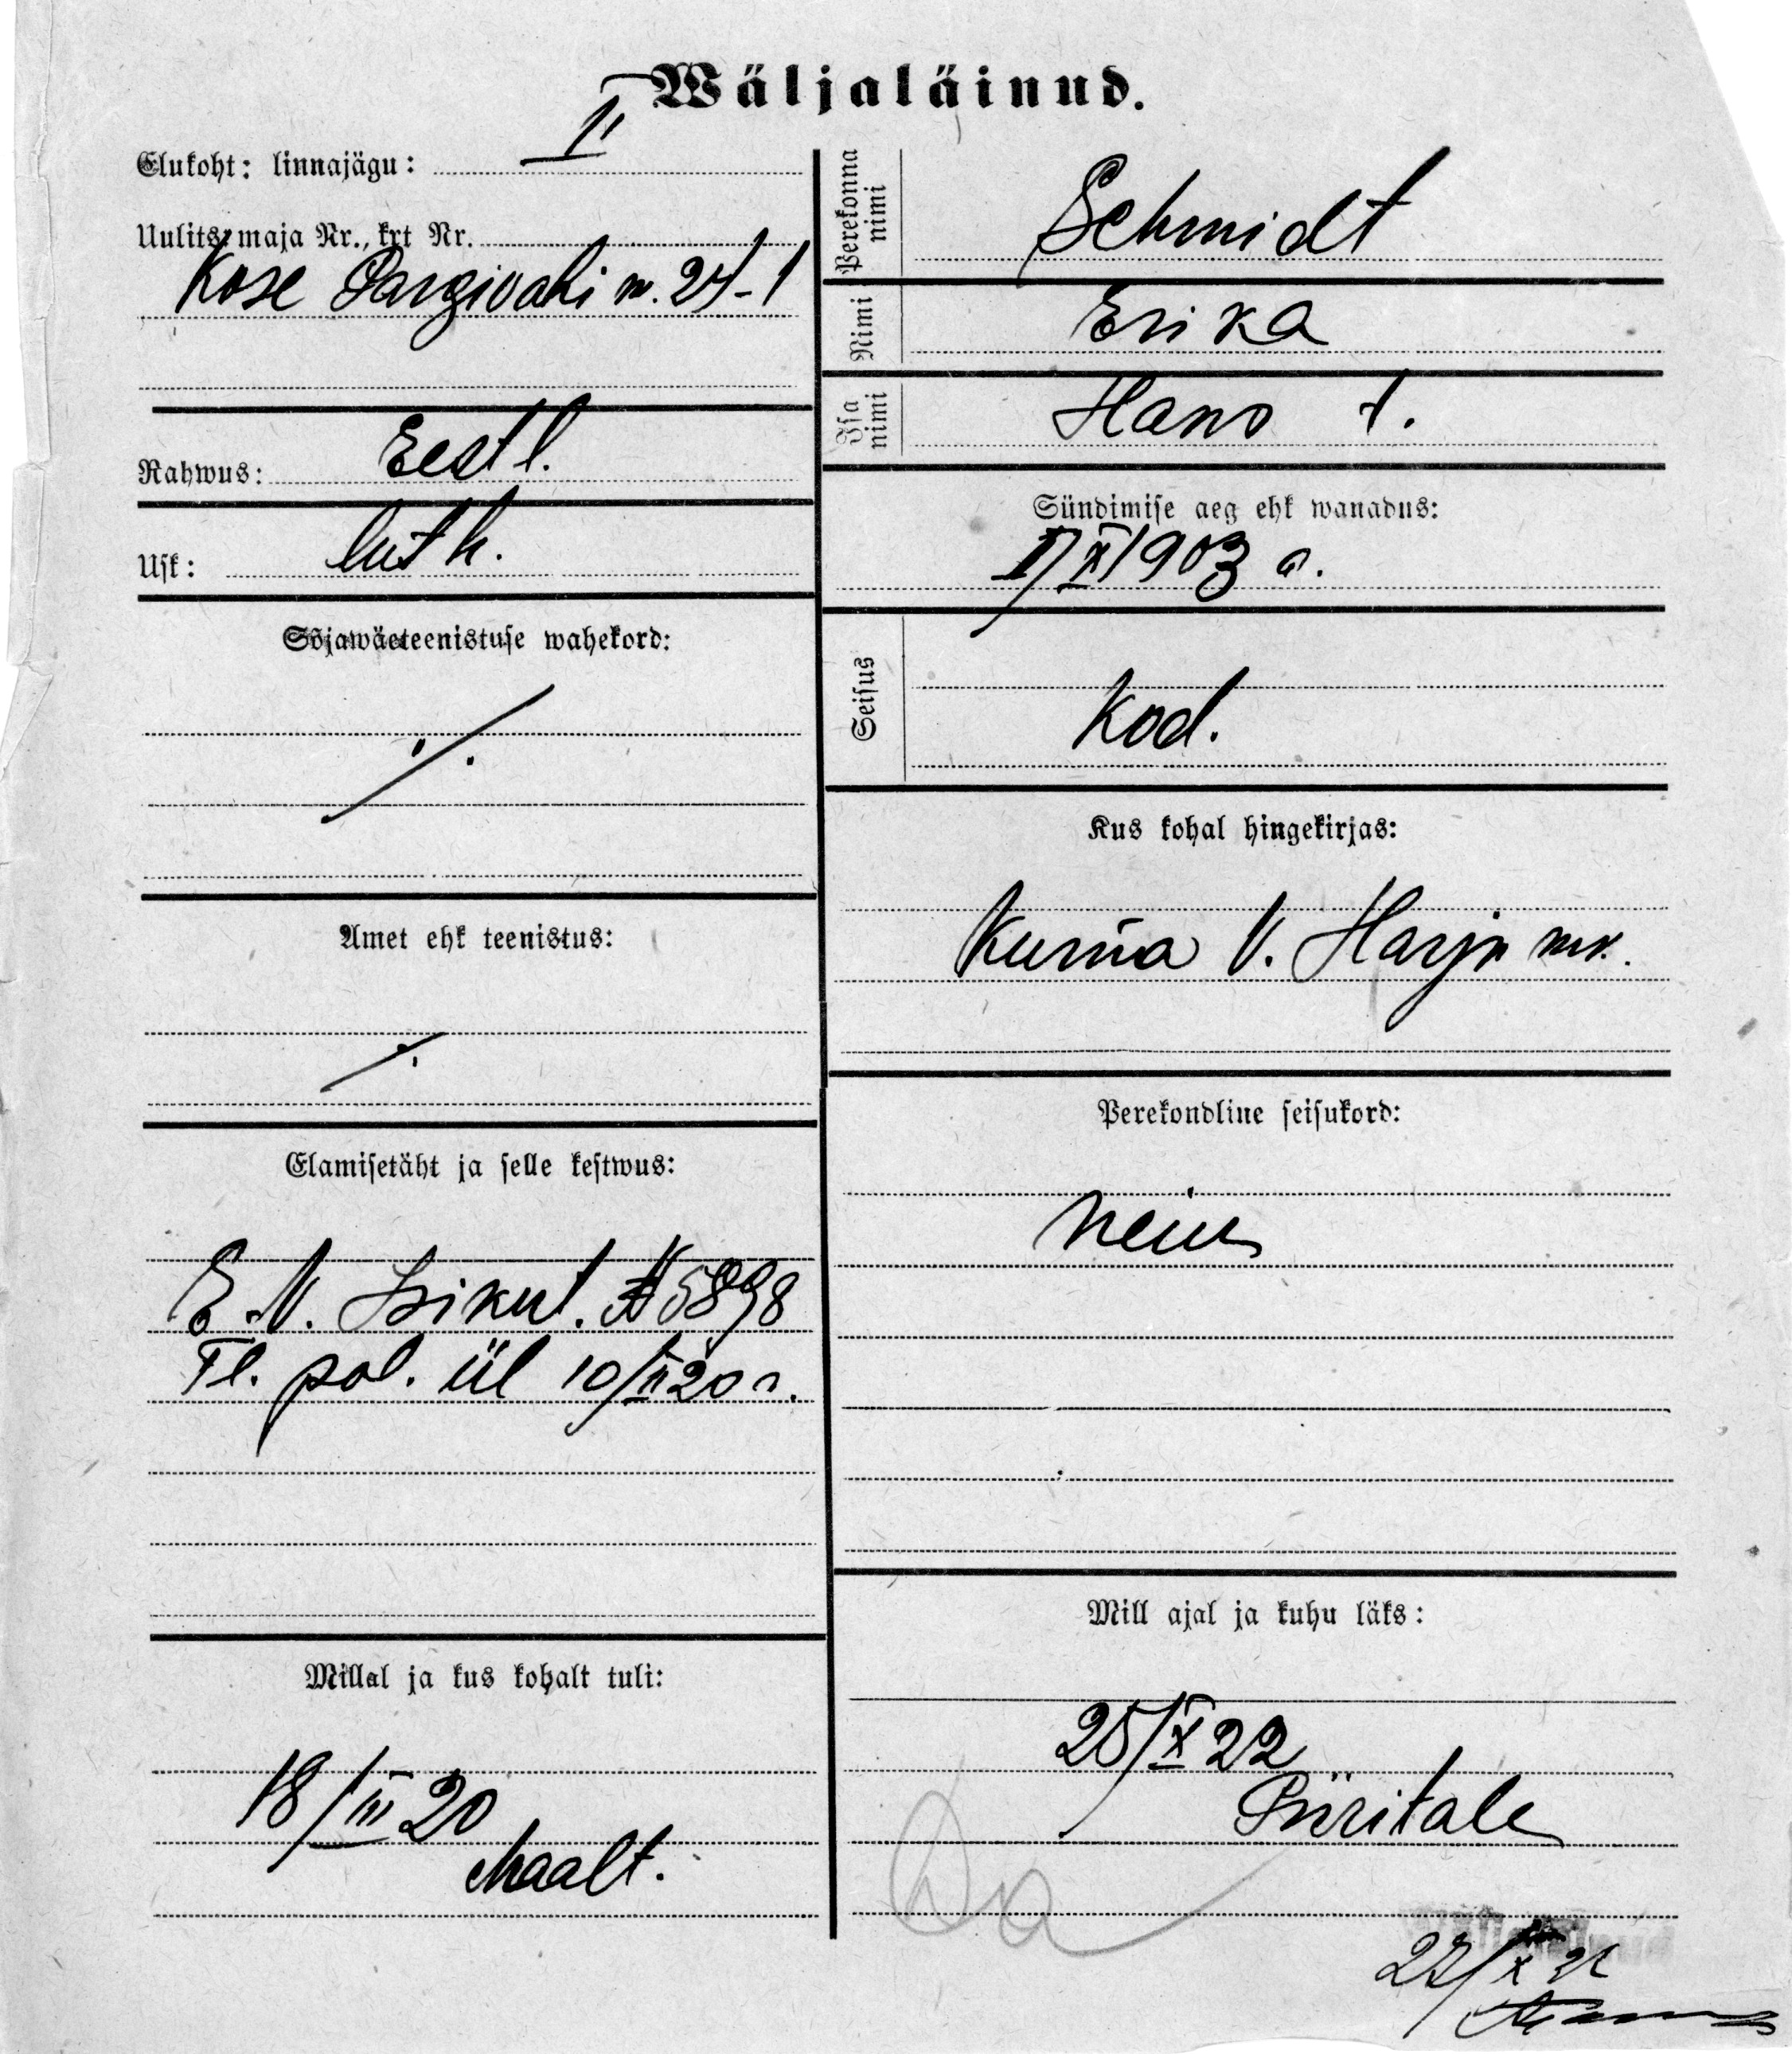 Wäljaläinud.
Elukoht: linnajägu: II
Uulits, maja Nr., krt Nr.
Kose Pargivahi m. 24-1
Rahwus: Eestl.
Usk: luth.
Sõjawäeteenistuse wahekord:
./.
Amet ehk teenistus:
./.
Elamisetäht ja selle kestwus:
E.V. Isikut. № 5898
Tl. pol. ül 10/II 20 a.
Millal ja kus kohalt tuli:
18/III 20
Maalt.
Perekonna nimi Schmidt
Nimi Erika
Isa nimi Hans t.
Sündimise aeg ehk wanadus:
1/XI 1903 a.
Seisus Kod.
Kus kohal hingekirjas:
Kurna V. Harju mk.
Perekondline seisukord:
neiu
Mill ajal ja kuhu läks:
25/X 22
Piiritale
Da
27/X 22